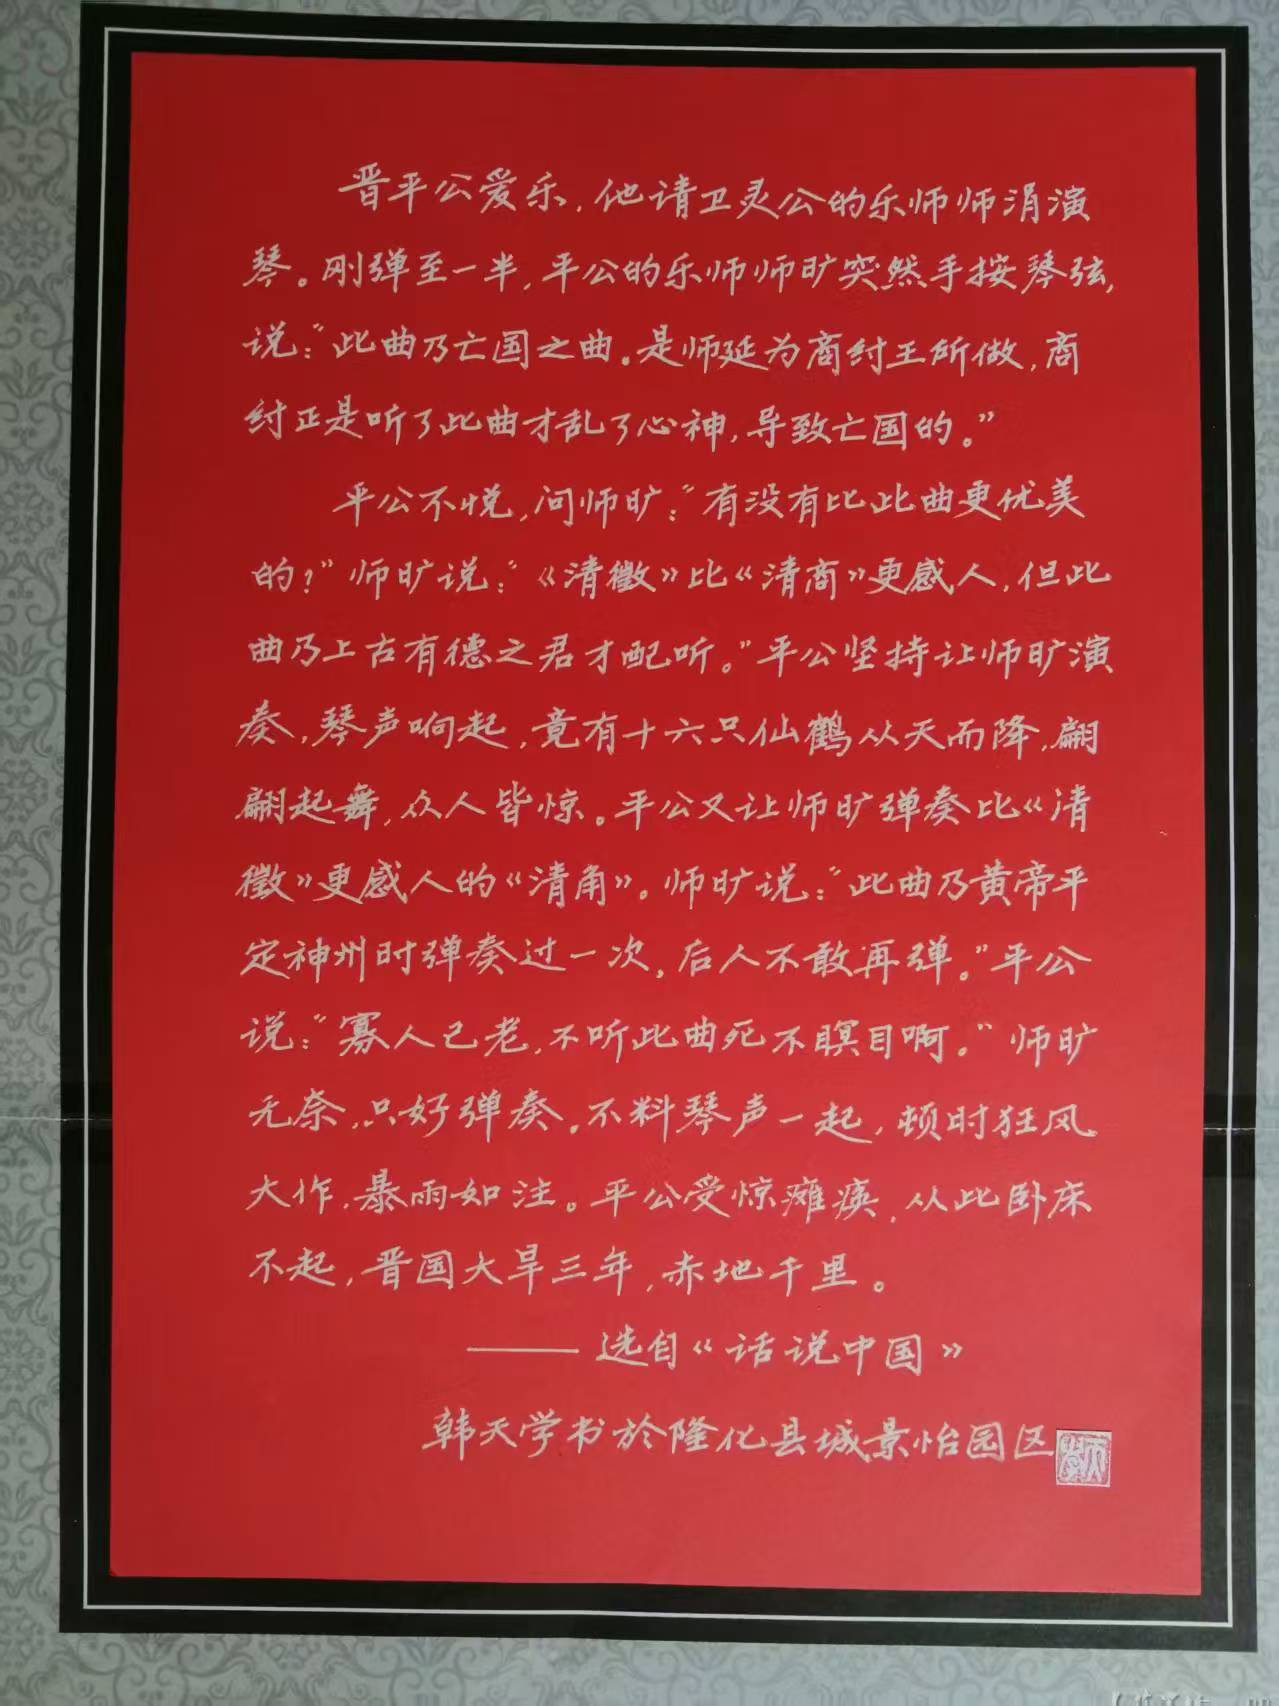 晋平公爱乐，他请卫灵公的乐师师涓演
琴。刚弹至一半，平公的乐师师旷突然手按琴弦，
说：“此曲乃亡国之曲。是师延为商纣王所做，商
纣正是听了此曲才乱了心神，导致亡国的。”
平公不悦，问师旷：“有没有比此曲更优美
的？”师旷说：“《清徵》比《清商》更感人，但此
曲乃上古有德之君才配听。”平公坚持让师旷演
奏，琴声响起，竟有十六只仙鹤从天而降，翩
翩起舞，众人皆惊。平公又让师旷弹奏比《清
徵》更感人的《清角》。师旷说：“此曲乃黄帝平
定神州时弹奏过一次，后人不敢再弹。”平公
说：“寡人已老，不听此曲死不瞑目啊。”师旷
无奈，只好弹奏。不料琴声一起，顿时狂风
大作，暴雨如注。平公受惊瘫痪，从此卧床
不起，晋国大旱三年，赤地千里。
——选自《话说中国》
韩天学书於隆化县城景怡园区